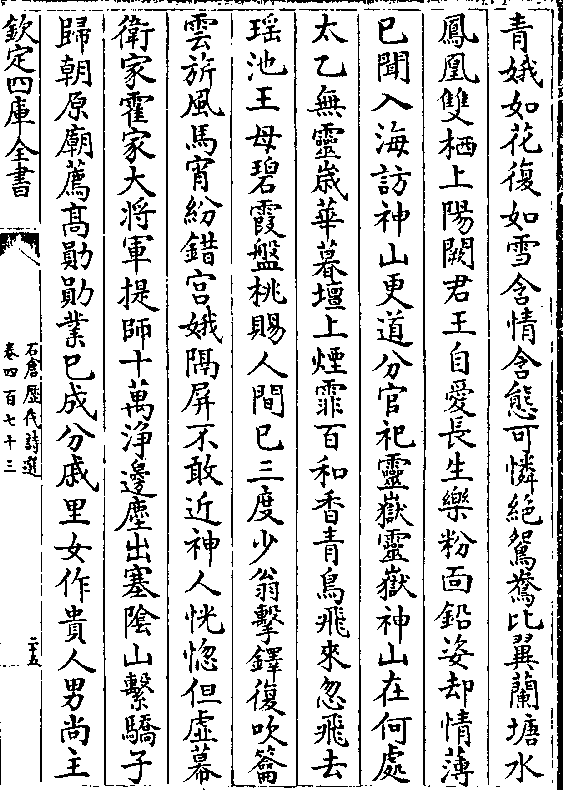 青娥如花復如雪含情含態可憐絕鴛鴦比翼蘭塘水
鳳凰雙栖上陽闕君王自愛長生樂粉面鉛姿却情薄
已聞入海訪神山更道分官祀靈嶽靈嶽神山在何處
太乙無靈歲華暮壇上煙霏百和香青鳥飛來忽飛去
瑶池王母碧霞盤桃賜人間已三度少翁擊鐸復吹籥
雲旂風馬宵紛錯宫娥隅屏不敢近神人恍惚但虛幕
衛家霍家大將軍提師十萬浄邊塵出塞陰山繫驕子
歸朝原廟薦髙勛勛業已成分戚里女作貴人男尚主
欽定四庫全書
石倉歷代詩選
卷四百七十三
二十五